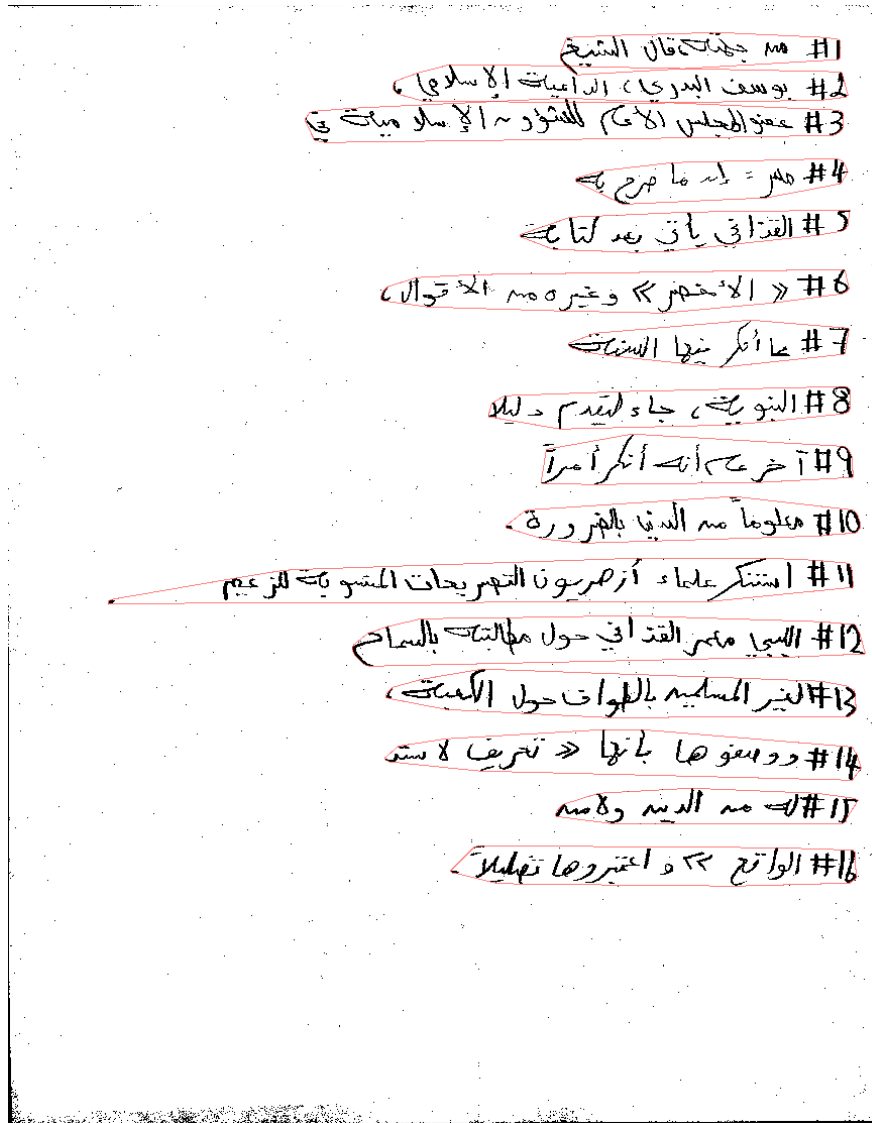 #1 من جهته، قال الشيخ
#2 يوسف البدري، الداعية الإسلامي،
#3 عضو المجلس الأعلى للشؤون الإسلامية في
#4 مصر = إن ما صرح به
#5 القذافي يأتي بعد كتابه
#6 « الأخضر » وغيره من الأقوال،
#7 ما أنكر فيها السنة
#8 النبوية، جاء ليقدم دليلا
#9 آخر على أنه أنكر أمراً
#10 معلوماً من الدين بالضرورة.
#11 استنكر علماء أزهريون التصريحات المنسوبة للزعيم
#12 الليبي معمر القذافي حول مطالبته بالسماح
#13 لغير المسلمين بالطواف حول الكعبة،
#14 ووصفوها بأنها « تحريف لا سند
#15 له من الدين ولا من
#16 الواقع » واعتبروها تضليلاً.